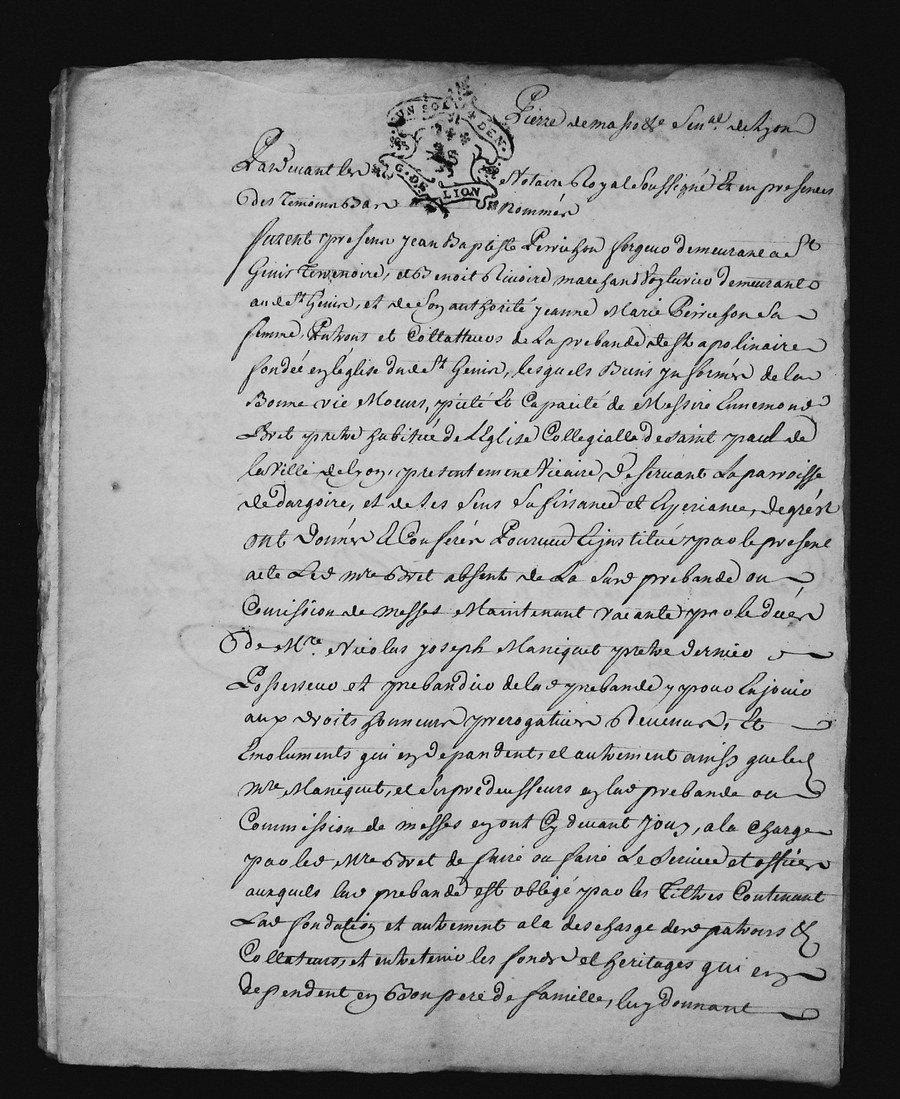 Pierre demasso &c Sen.al de Lyon
UN SOL 4 DEN.
G. DE LION
Pardevant les Notaire Royal soussigné Et en presences
des Temoins Bas nommés
furent presens jean Baptiste Perrichon forgeur demeurant a St
Genis Terrenoire, et Benoit Rivoire marchand demeurant
au d. St Genis, et de son authorité jeanne Marie Perrichon sa
femme, Patrons et Collatteurs de la prebande de St apolinaire
fondée en léglise du d. St Genis, lesquels Buins jn formés de la
Bonne vie Moeurs, pieté Et Capacité de Messire Ennemond
Bret pretre habitué de l'Eglise Collegialle de saint paul de
la ville de Lyon, presentement Vicaire Deservant La parroisse
de dargoire, et de ses sens sufisance et Experiance, de grés
ont donnés & Conferés Pourvud & jnstitué par le present
acte Led mre Bret absent de La sus d prebande ou
Comission de messes Maintenant vacante par le decés
de Mre. Nicolas joseph Maniquet pretre dernier
Possesseur et prebandier de lad prebande, pour En jouir
aux droits honneurs prerogatives Revenus, Et
Emoluments qui en depandent, et autrement ainsy que led
mre Maniquet, et ses predecesseurs en lad prebande ou
Commission de messes en ont Cy devant Jouy, a la Charge
par led Mre Bret de faire ou faire Le service et offices
auxquels lad prebande est obligé par les Tiltres Contenant
Lad fondation et autrement a la descharge desd patrons &
Collateurs, et entretenir les fonds et heritages qui en
dependent en Bon pere de famille, luy donnant